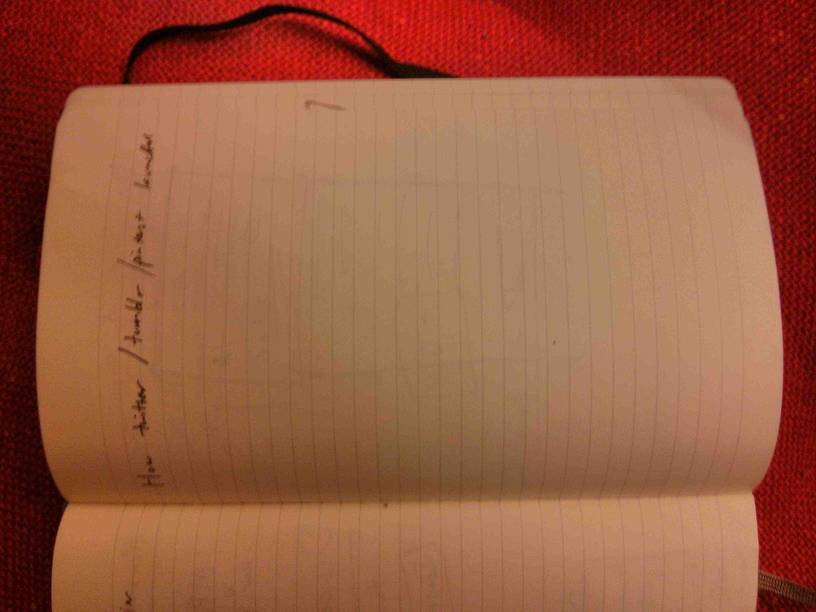 How twitter / tumblr / pinterest launched